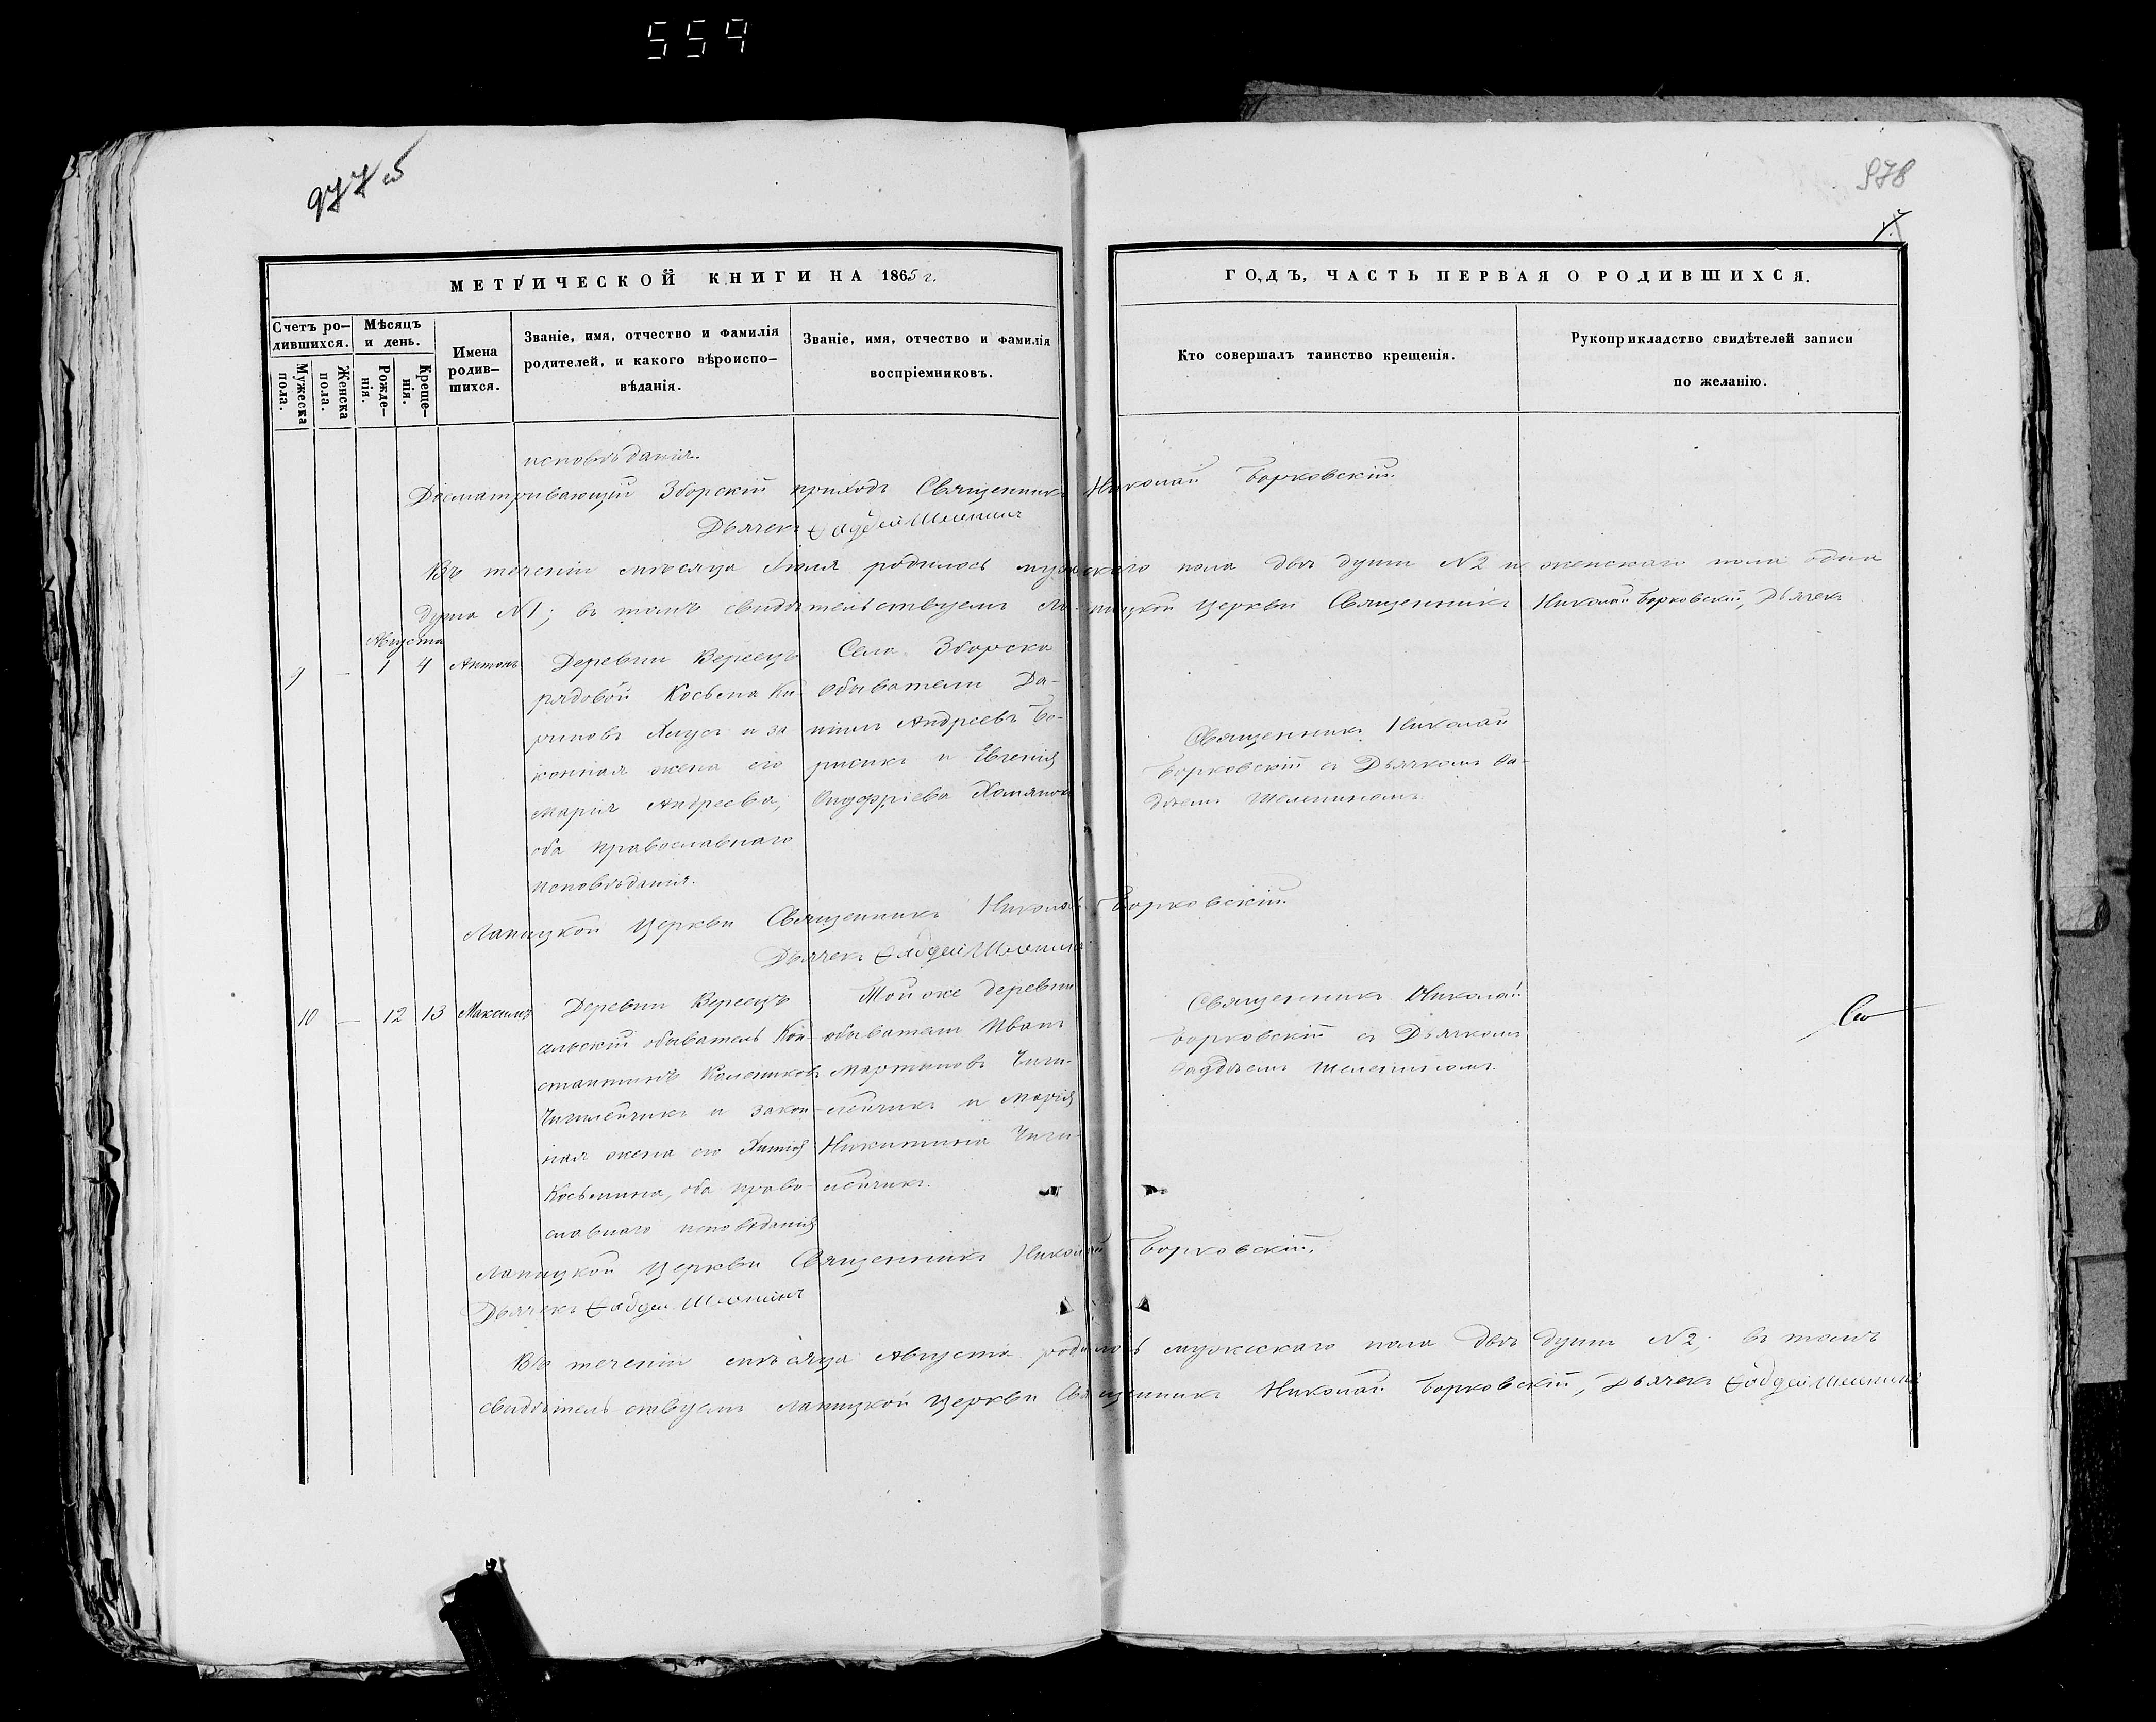 559
977 об
978
7.
МЕТРИЧЕСКОЙ КНИГИ НА 1865 г.
ГОДЪ, ЧАСТЬ ПЕРВАЯ О РОДИВШИХСЯ.
Счетъ ро-
дившихся.
Мѣсяцъ
и день.
Мужеска
пола.
Женска
пола.
Рожде-
нія.
Креще-
нія.
Имена
родив-
шихся.
Званіе, имя, отчество и фамилія
родителей, и какого вѣроиспо-
вѣданія.
Званіе, имя, отчество и фамилія
воспріемниковъ.
Кто совершалъ таинство крещенія.
Рукоприкладство свидѣтелей записи
по желанію.
исповѣданія.
Досматривающій Зборскій приходъ Священникъ Николай Борковскій.
Дьячекъ
Въ теченіи мѣсяца Іюля родилось мужескаго пола двѣ души N2 и женскаго пола одна
душа N1; въ томъ свидѣтельствуемъ Лапицкой церкви Священникъ Николай Борковскій, Дьячекъ
Августа
9 - 1 4 Антонъ
Деревни Вересцъ
рядовой Косьма Ки-
риковъ и за-
конная жена его
Марія Андреева,
оба православнаго
исповѣданія.
Села Зборска
обыватели Да-
ніилъ Андреевъ Бо-
рисикъ и Евгенія
Онуфріева
Священникъ Николай
Борковскій съ Дьячкомъ Фа-
дѣемъ
Лапицкой церкви Священникъ Николай Борковскій.
Дьячекъ
10 - 12 13 Максимъ
Деревни Вересцъ
сельскій обыватель Кон-
стантинъ
и закон-
ная жена его
Косьмина, оба право-
славнаго исповѣданія
Той же деревни
обыватели Иванъ
Мартиновъ
и Марія
Никитина
Священникъ Николай
Борковскій съ Дьячкомъ
Фаддѣемъ
Лапицкой церкви Священникъ Николай Борковскій.
Дьячекъ
Въ теченіи мѣсяца Августа родилось мужескаго пола двѣ души N2; въ томъ
свидѣтельствуемъ Лапицкой церкви Священникъ Николай Борковскій, Дьячекъ